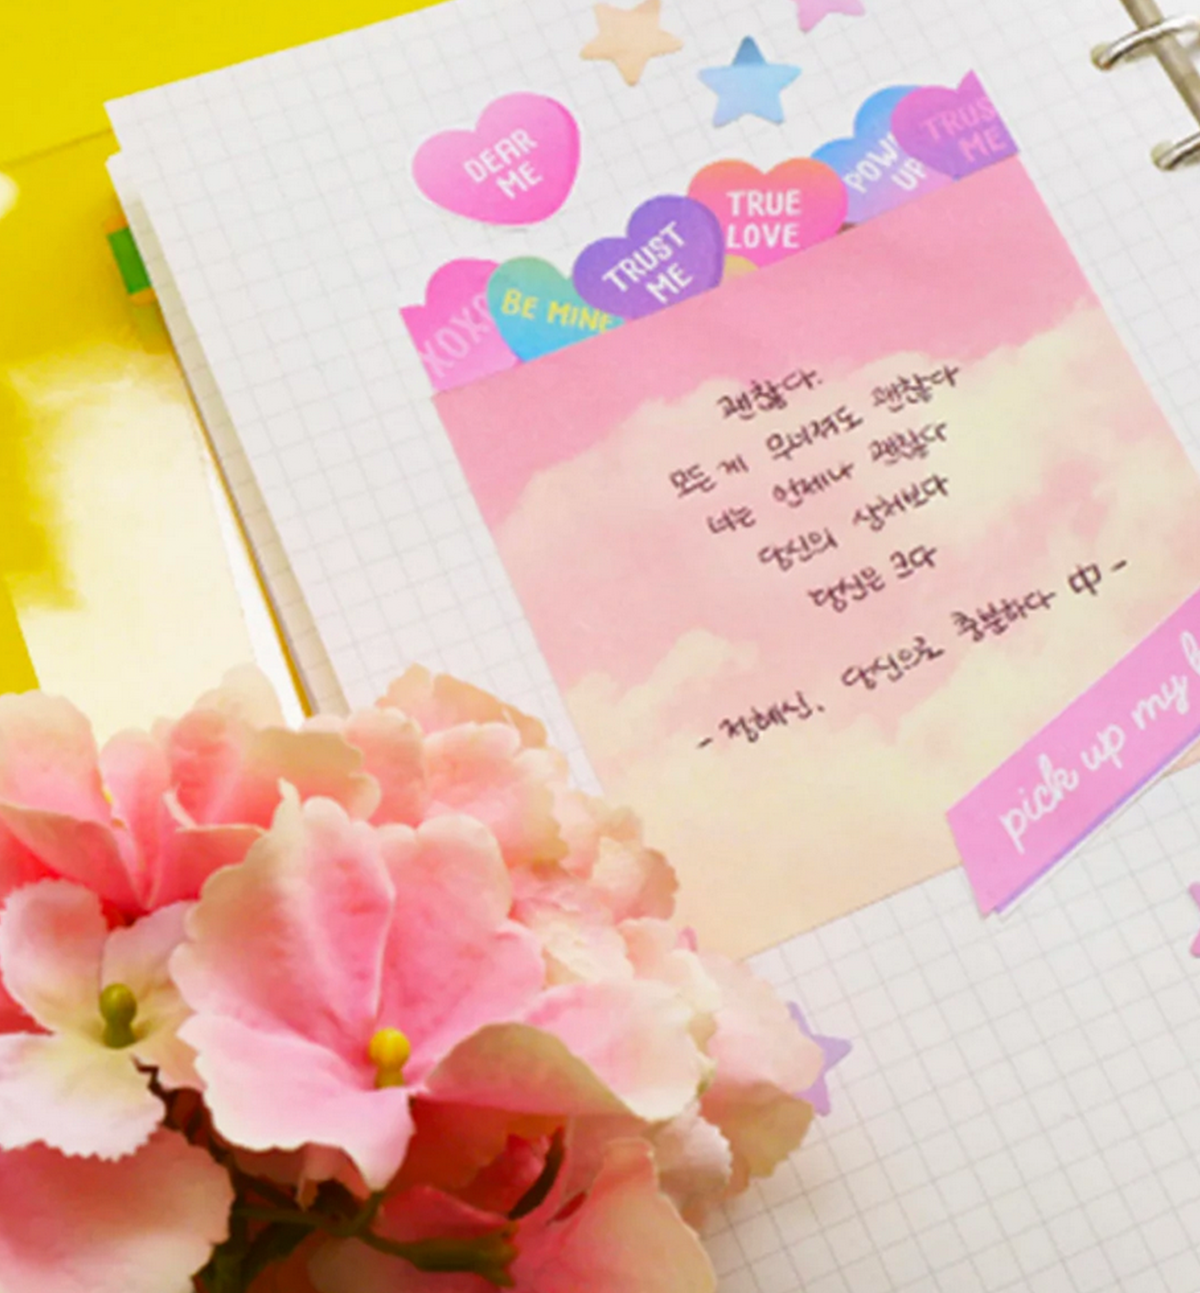 DEAR
ME
TRUS
ME
POW
UP
TRUE
LOVE
TRUST
ME
BE MINE
XOXO
괜찮다.
모든 게 무너져도 괜찮다
너는 언제나 괜찮다
당신의 상처보다
당신은 크다
- 정혜신, 당신으로 충분하다 中 -
pick up my